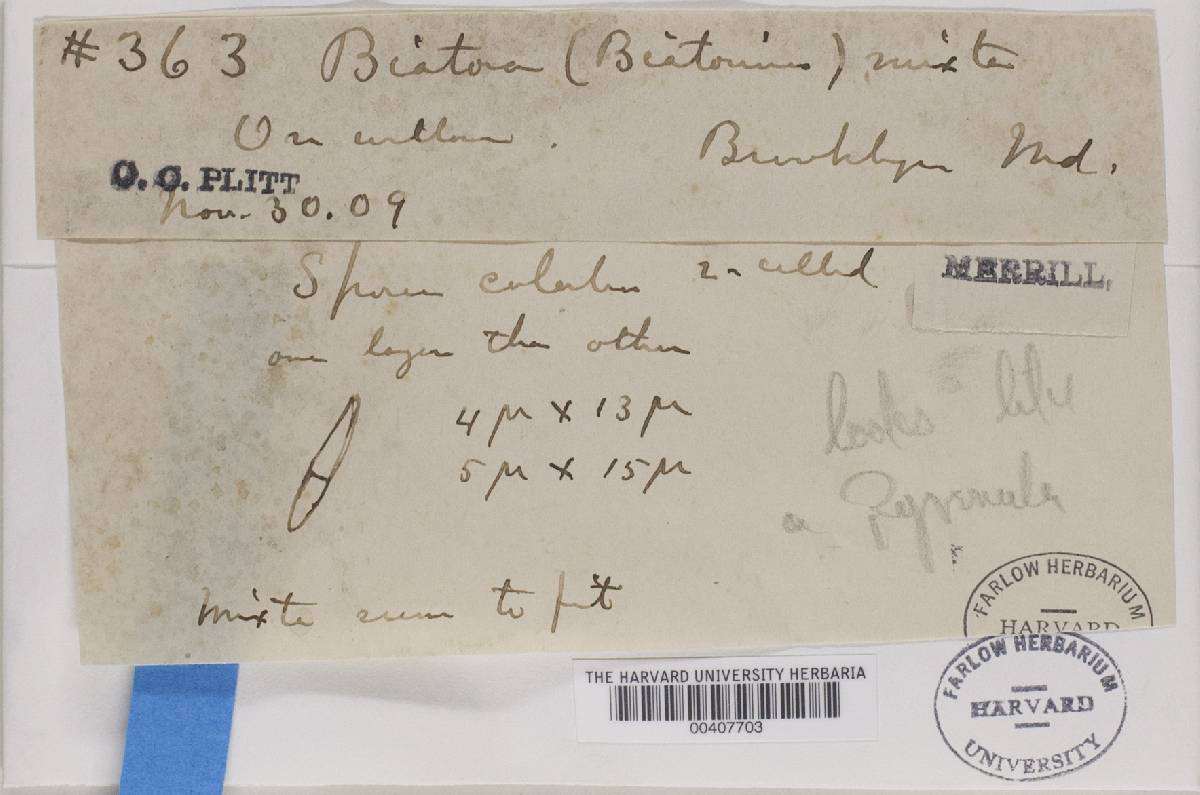 #363 Biatora (Biatorina) mixta
On willow. Brooklyn Md.
C. C. PLITT
Nov. 30. 09
Spores colorless 2-celled
MERRILL.
one larger than other
4μ x 13μ
looks like
5μ x 15μ
a Pyrenula
mixta seem to fit
FARLOW HERBARIUM
HARVARD
THE HARVARD UNIVERSITY HERBARIA
00407703
FARLOW HERBARIUM
HARVARD
UNIVERSITY